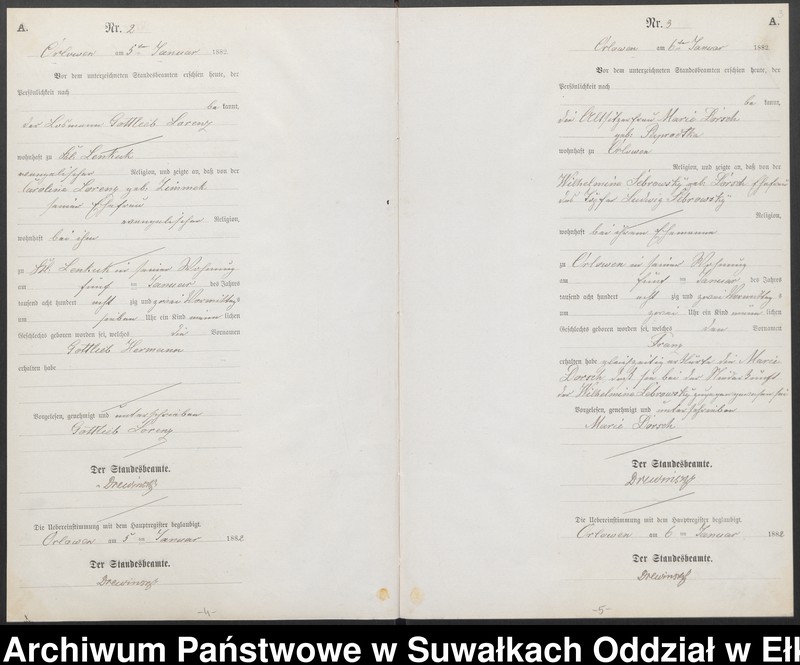 A.
Nr. 2
Orlowen am 5ten Januar 1882.
Vor dem unterzeichneten Standesbeamten erschien heute, der
Persönlichkeit nach
be kannt,
der Losmann Gottlieb Lorenz
wohnhaft zu Kl. Lenkuk
evangelischer Religion, und zeigte an, daß von der
Caroline Lorenz geb.
seiner Ehefrau
evangelischer Religion,
wohnhaft bei ihm
zu Kl. Lenkuk in seiner Wohnung
am fünf ten Januar des Jahres
tausend acht hundert acht zig und zwei Vormittags
um sieben Uhr ein Kind männ lichen
Geschlechts geboren worden sei, welches die Vornamen
Gottlieb Hermann
erhalten habe
Vorgelesen, genehmigt und unterschrieben
Gottlieb Lorenz
Der Standesbeamte.
Die Uebereinstimmung mit dem Hauptregister beglaubigt.
Orlowen am 5 ten Januar 1882
Der Standesbeamte.
-4-
Nr. 3
A.
Orlowen am 6ten Januar 1882.
Vor dem unterzeichneten Standesbeamten erschien heute, der
Persönlichkeit nach
be kannt,
die Altsitzerfrau Marie Dorsch
geb.
wohnhaft zu Orlowen
Religion, und zeigte an, daß von der
Wilhelmine Sebrowsky geb. Dorsch Ehefrau
des Ludwig Sebrowsky
Religion,
wohnhaft bei ihrem Ehemanne
zu Orlowen in seiner Wohnung
am fünf ten Januar des Jahres
tausend acht hundert acht zig und zwei Vormittags
um zwei Uhr ein Kind männ lichen
Geschlechts geboren worden sei, welches den Vornamen
Franz
erhalten habe gleichzeitig erklärte die Marie
Dorsch, daß sie bei der Niederkunft
der Wilhelmine Sebrowsky zugegen gewesen sei
Vorgelesen, genehmigt und unterschrieben
Marie Dorsch
Der Standesbeamte.
Die Uebereinstimmung mit dem Hauptregister beglaubigt.
Orlowen am 6 ten Januar 1882
Der Standesbeamte.
-5-
Archiwum Państwowe w Suwałkach Oddział w Ełk